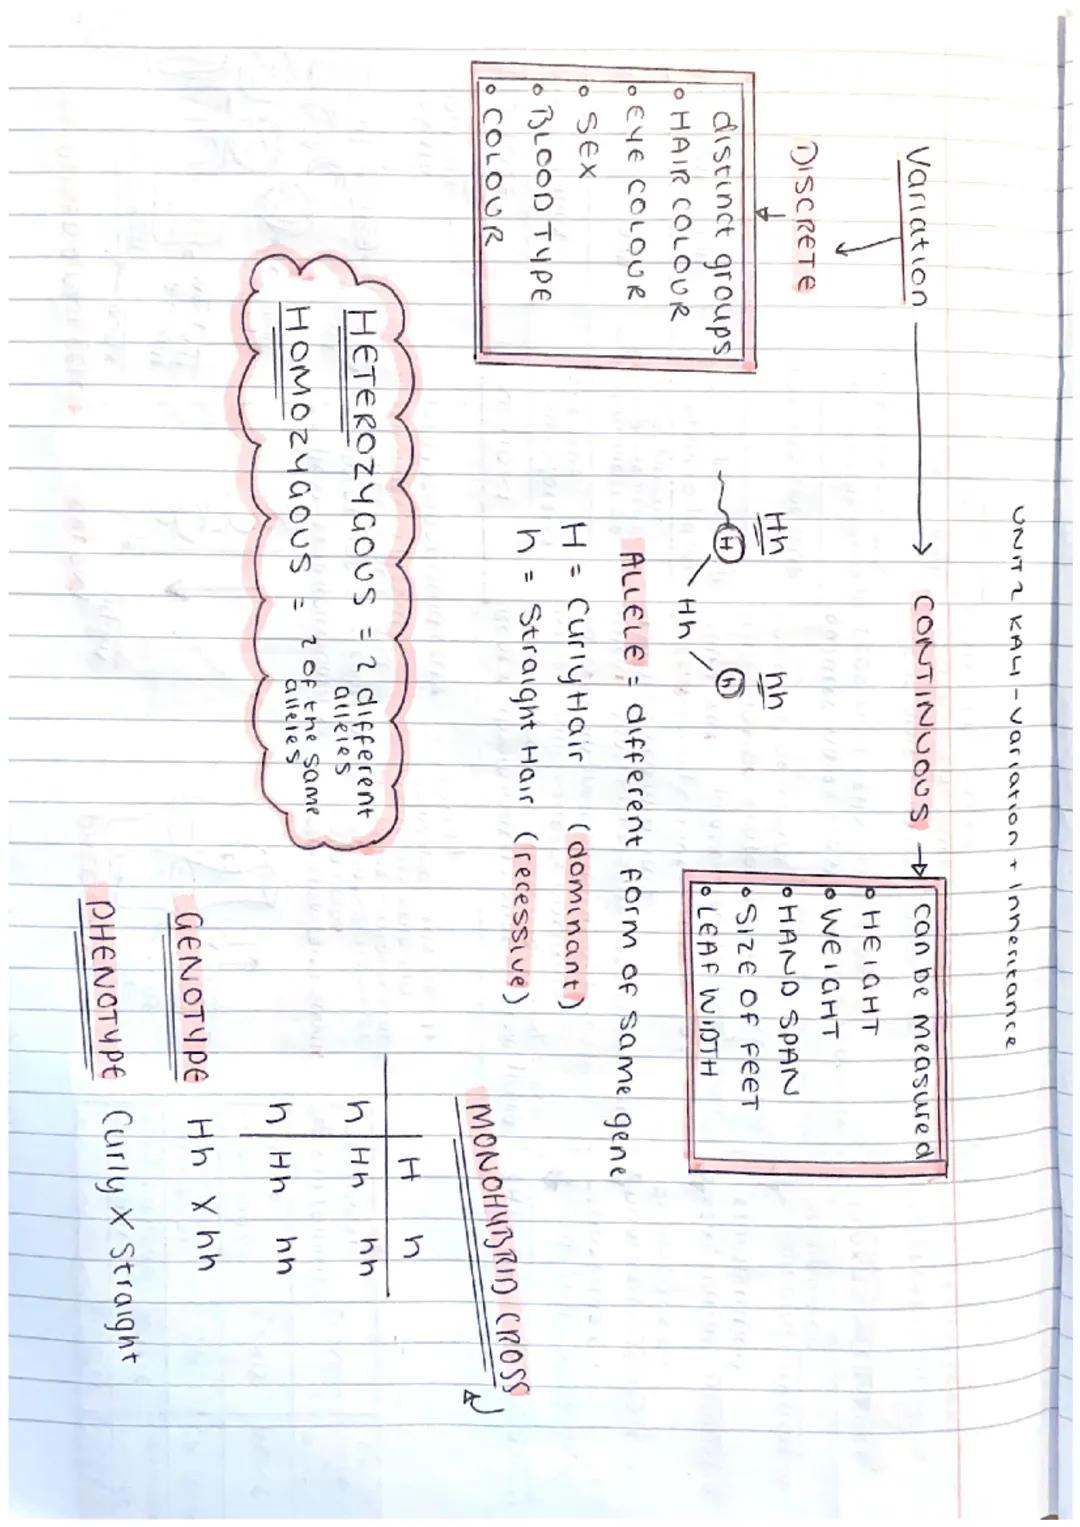 UNIT 2 KA4 - Variation + Inheritance
Variation → CONTINUOUS →
can be measured
• HEIGHT
• WEIGHT
• HAND SPAN
• SIZE OF FEET
• LEAF WIDTH
DISCRETE
distinct groups
• HAIR COLOUR
• EYE COLOUR
• SEX
• BLOOD TYPE
• COLOUR
Hh hh
H h
Hh
ALLELE = different form of same gene
H = Curly Hair (dominant)
h = Straight Hair (recessive)
HETEROZYGOUS = 2 different
alleles
HOMOZYGOUS = 2 of the same
alleles
MONOHYBRID CROSS
H h
h Hh hh
h Hh hh
GENOTYPE Hh X hh
PHENOTYPE Curly X Straight